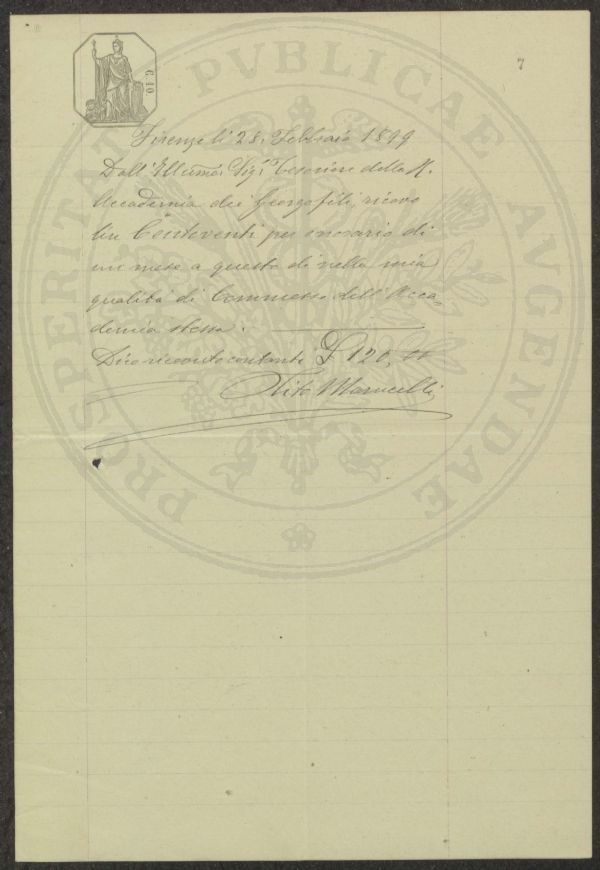 7
C. 10
PROSPERITATI PVBLICAE AVGENDAE
Firenze li 28. Febbraio 1899
Dall' Illumo. Sigr. Tesoriere della R.
Accademia dei Georgofili, ricevo
Lire Centoventi per onorario di
un mese a questo dì nella mia
qualità di Commesso dell' Acca-
demia stessa.
Dico ricevuto contanti £ 120,
Tito Marucelli